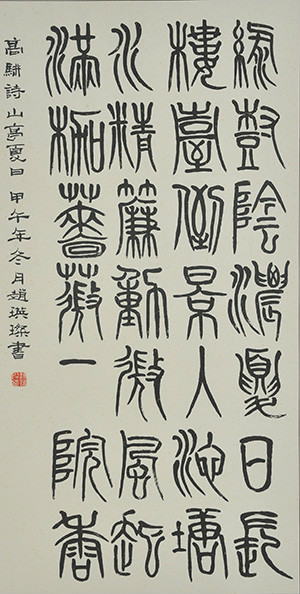 綠樹陰濃夏日長
樓臺倒景入池塘
水精簾動微風起
滿架薔薇一院香
高駢詩山亭夏日 甲午年冬月趙書